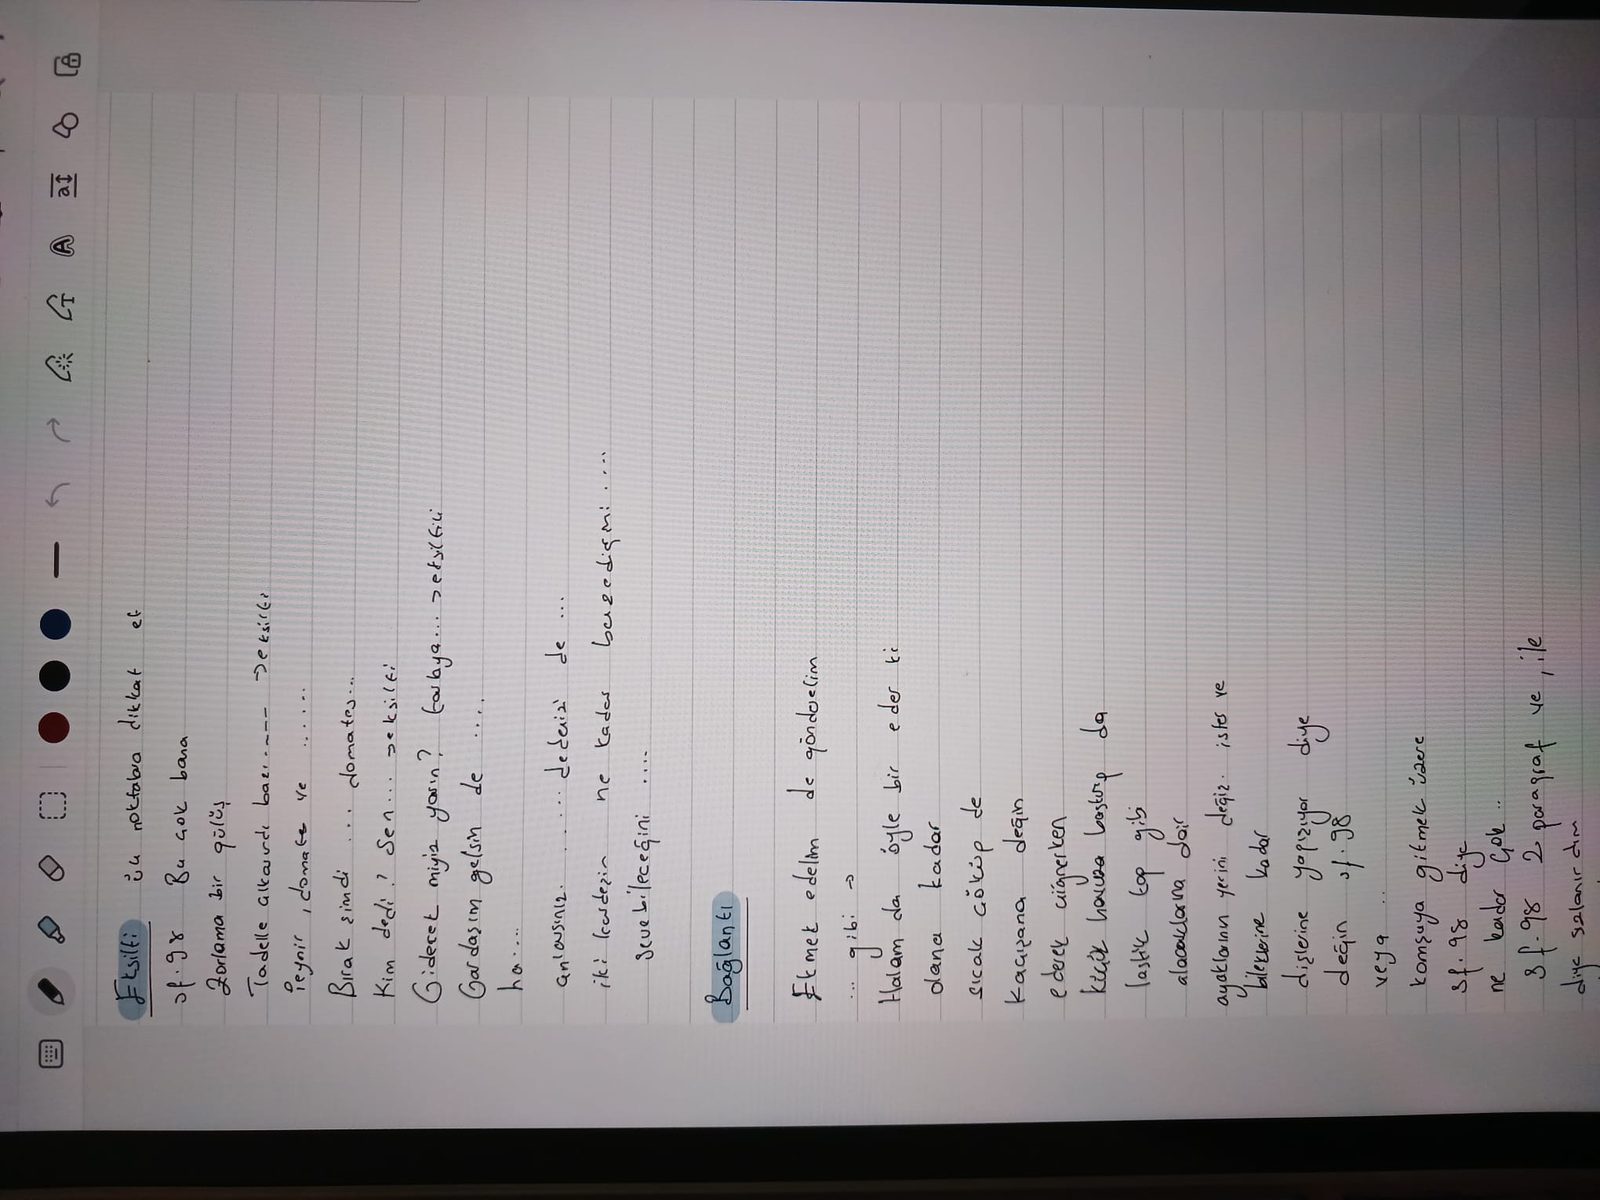 Eksilti üç noktalara dikkat et
sf. 98 Bu çok bana
Zorlama bir gülüş
Tadelle alkasındı → eksilti
Peynir, domates ve .....
Bırak şimdi .... domates...
Kim dedi? Sen... → eksilti
Giderek miyiz yarın? tarlaya... → eksiltili
Gardaşım gelsin de .....
ha....
anlarsınız...... dedeniz de ...
iki kardeşin ne kadar benzediğini ....
sevebileceğini ....
Bağlantı
Ekmek edelim de gönderelim
... gibi →
Halam da öyle bir eder ki
olana kadar
sıcak çöküp de
kaçışana değin
ederek çiğnerken
küçük havuza bastırıp da
lastik top gibi
alacaklarına dair
ayaklarının yerini değiz. ister ve
bileklerine kadar
dişlerine yapışıyor diye
değin sf. 98
veya ..
komşuya gitmek üzere
sf. 98 diye
ne kadar çok..
sf. 98 2 paragraf ve, ile
diye